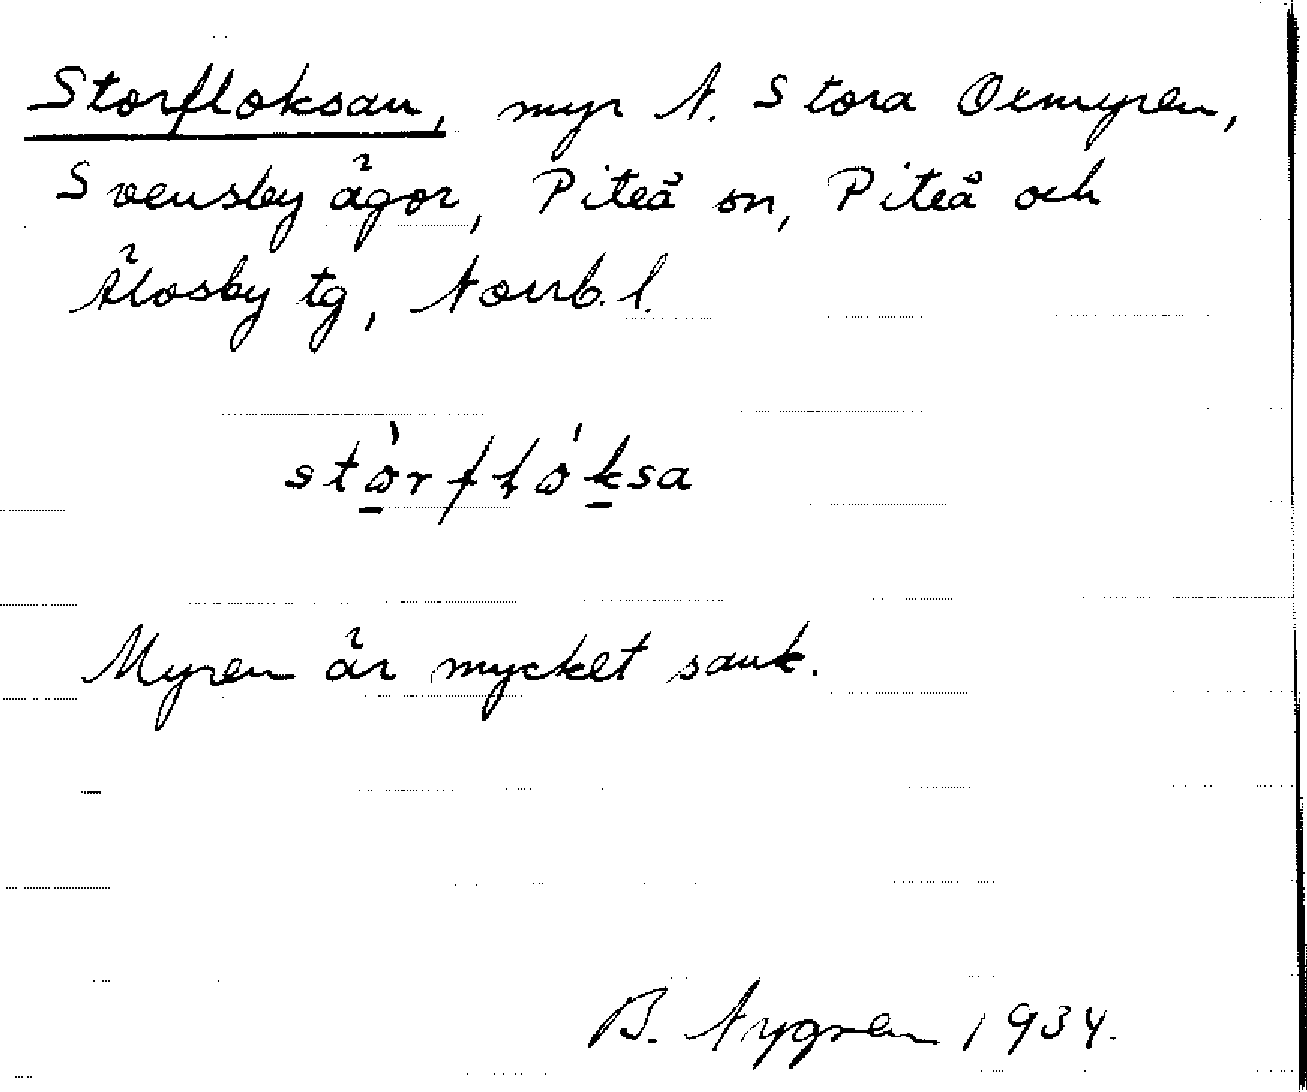 Storfloksan, myr N. Stora Ormyren,
Svensby ägor, Piteå sn, Piteå och
Älvsby tg, Norrb. l.
stòrflóksa
Myren är mycket sank.
B. Nygren 1934.